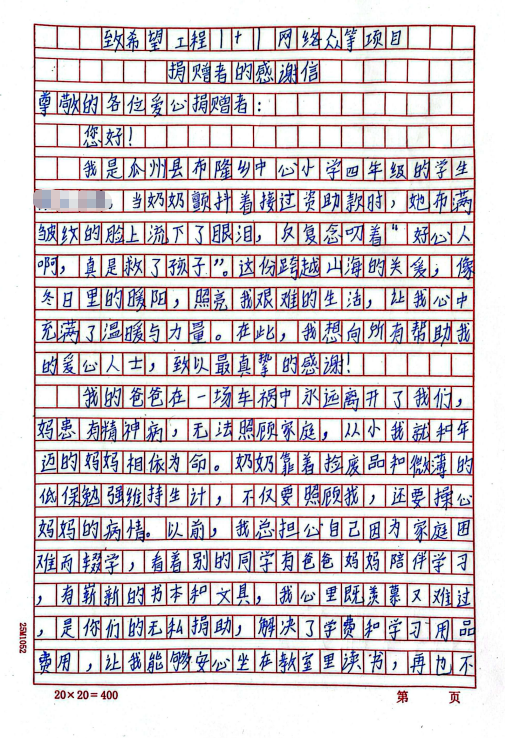 致希望工程1+1网络众筹项目
捐赠者的感谢信
尊敬的各位爱心捐赠者：
您好！
我是瓜州县布隆乡中心小学四年级的学生
，当奶奶颤抖着接过资助款时，她布满
皱纹的脸上流下了眼泪，反复念叨着“好心人
啊，真是救了孩子”。这份跨越山海的关爱，像
冬日里的暖阳，照亮我艰难的生活，让我心中
充满了温暖与力量。在此，我想向所有帮助我
的爱心人士，致以最真挚的感谢！
我的爸爸在一场车祸中永远离开了我们，
妈患有精神病，无法照顾家庭，从小我就和年
迈的妈妈相依为命。奶奶靠着捡废品和微薄的
低保勉强维持生计，不仅要照顾我，还要操心
妈妈的病情。以前，我总担心自己因为家庭困
难而辍学，看着别的同学有爸爸妈妈陪伴学习
，有崭新的书本和文具，我心里既羡慕又难过
，是你们的无私捐助，解决了学费和学习用品
费用，让我能够安心坐在教室里读书，再也不
25M1052
20×20=400 第 页